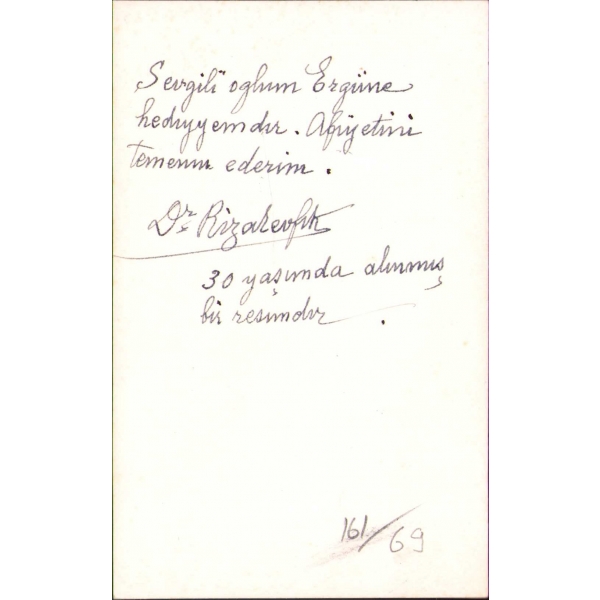 Sevgili oğlum Ergüne
hediyyemdir. Afiyetini
temenni ederim.
Dr Rıza Tevfik
30 yaşımda alınmış
bir resimdir.
161/69